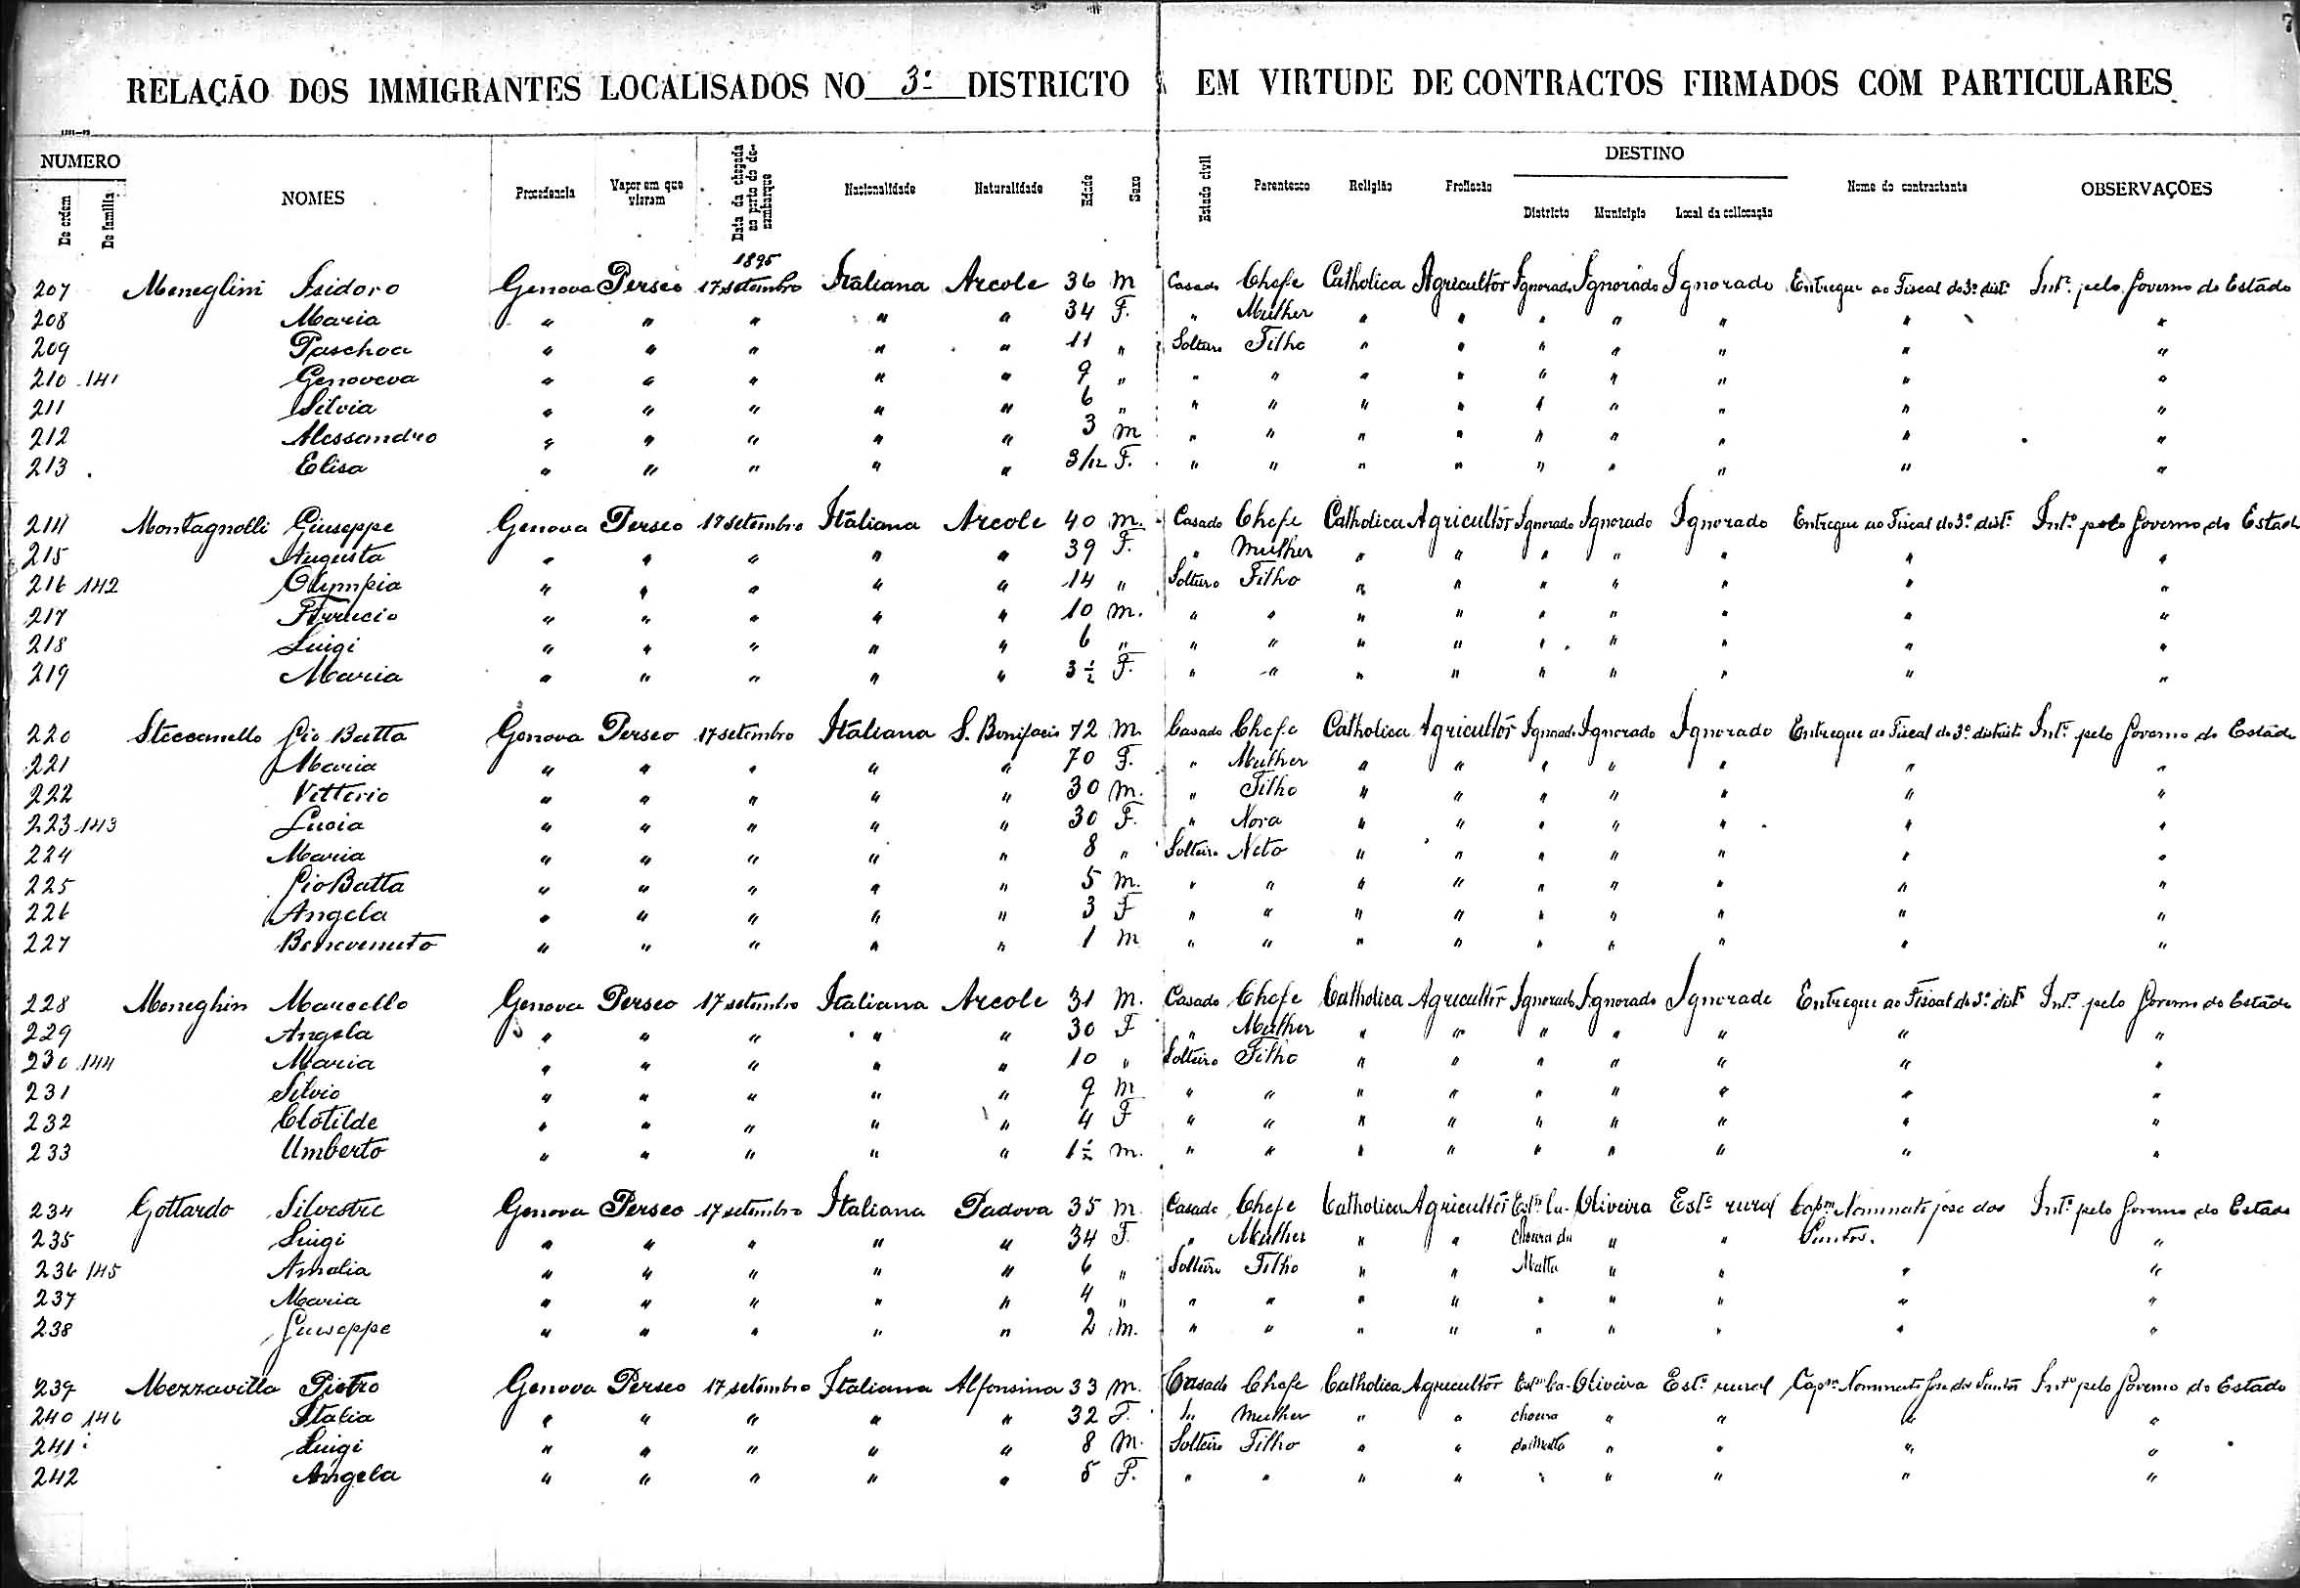 7
RELAÇÃO DOS IMMIGRANTES LOCALISADOS NO 3º DISTRICTO EM VIRTUDE DE CONTRACTOS FIRMADOS COM PARTICULARES
NUMERO De ordem De familia NOMES Procedencia Vapor em que vieram Data da chegada ao porto do desembarque Nacionalidade Naturalidade Edade Sexo Estado civil Parentesco Religião Profissão DESTINO Districto Municipio Local da collocação Nome do contractante OBSERVAÇÕES
1895
207 Meneglini Isidoro Genova Perseo 17 setembro Italiana Arcole 36 M Casado Chefe Catholica Agricultor Ignorado Ignorado Ignorado Entregue ao Fiscal do 3º distº Intº pelo Governo do Estado
208 Maria " " " " " 34 F. " Mulher " " " " " " "
209 Paschoa " " " " " 11 " Solteiro Filho " " " " " " "
210 141 Genoveva " " " " " 9 " " " " " " " " " "
211 Silvia " " " " " 6 " " " " " " " " " "
212 Alessandro " " " " " 3 M " " " " " " " " "
213 Elisa " " " " " 3/12 F. " " " " " " " " "
214 Montagnolli Giuseppe Genova Perseo 17 setembro Italiana Arcole 40 M. Casado Chefe Catholica Agricultor Ignorado Ignorado Ignorado Entregue ao Fiscal do 3º distº Intº pelo Governo do Estado
215 Augusta " " " " " 39 F. " Mulher " " " " " " "
216 142 Olympia " " " " " 14 " Solteiro Filho " " " " " " "
217 Ferrucio " " " " " 10 M. " " " " " " " " "
218 Luigi " " " " " 6 " " " " " " " " " "
219 Maria " " " " " 3 1/2 F. " " " " " " " " "
220 Steccanello Gio Batta Genova Perseo 17 setembro Italiana S. Bonifacio 72 M. Casado Chefe Catholica Agricultor Ignorado Ignorado Ignorado Entregue ao Fiscal do 3º districto Intº pelo Governo do Estado
221 Maria " " " " " 70 F. " Mulher " " " " " " "
222 Vittorio " " " " " 30 M. " Filho " " " " " " "
223 143 Lucia " " " " " 30 F. " Nora " " " " " " "
224 Maria " " " " " 8 " Solteiro Neto " " " " " " "
225 Gio Batta " " " " " 5 M. " " " " " " " " "
226 Angela " " " " " 3 F " " " " " " " " "
227 Benevenuto " " " " " 1 M " " " " " " " " "
228 Meneghin Marcello Genova Perseo 17 setembro Italiana Arcole 31 M. Casado Chefe Catholica Agricultor Ignorado Ignorado Ignorado Entregue ao Fiscal do 3º distº Intº pelo Governo do Estado
229 Angela " " " " " 30 F " Mulher " " " " " " "
230 144 Maria " " " " " 10 " Solteiro Filho " " " " " " "
231 Silvio " " " " " 9 M " " " " " " " " "
232 Clotilde " " " " " 4 F " " " " " " " " "
233 Umberto " " " " " 1 1/2 M. " " " " " " " " "
234 Gottardo Silvestre Genova Perseo 17 setembro Italiana Padova 35 M. Casado Chefe Catholica Agricultor Estm Ca- Oliveira Estº rural Capm Nominato José dos Intº pelo Governo do Estado
235 Luigi " " " " " 34 F. " Mulher " " choeira da " " Santos. "
236 145 Amalia " " " " " 6 " Solteiro Filho " " Matta " " " "
237 Maria " " " " " 4 " " " " " " " " " "
238 Giuseppe " " " " " 2 M. " " " " " " " " "
239 Mezzavilla Pietro Genova Perseo 17 setembro Italiana Alfonsina 33 M. Casado Chefe Catholica Agricultor Estm Ca- Oliveira Estº rural Capm Nominato José dos Santos Intº pelo Governo do Estado
240 146 Italia " " " " " 32 F. " Mulher " " choeira " " " "
241 Luigi " " " " " 8 M. Solteiro Filho " " da Matta " " " "
242 Angela " " " " " 5 F. " " " " " " " " "